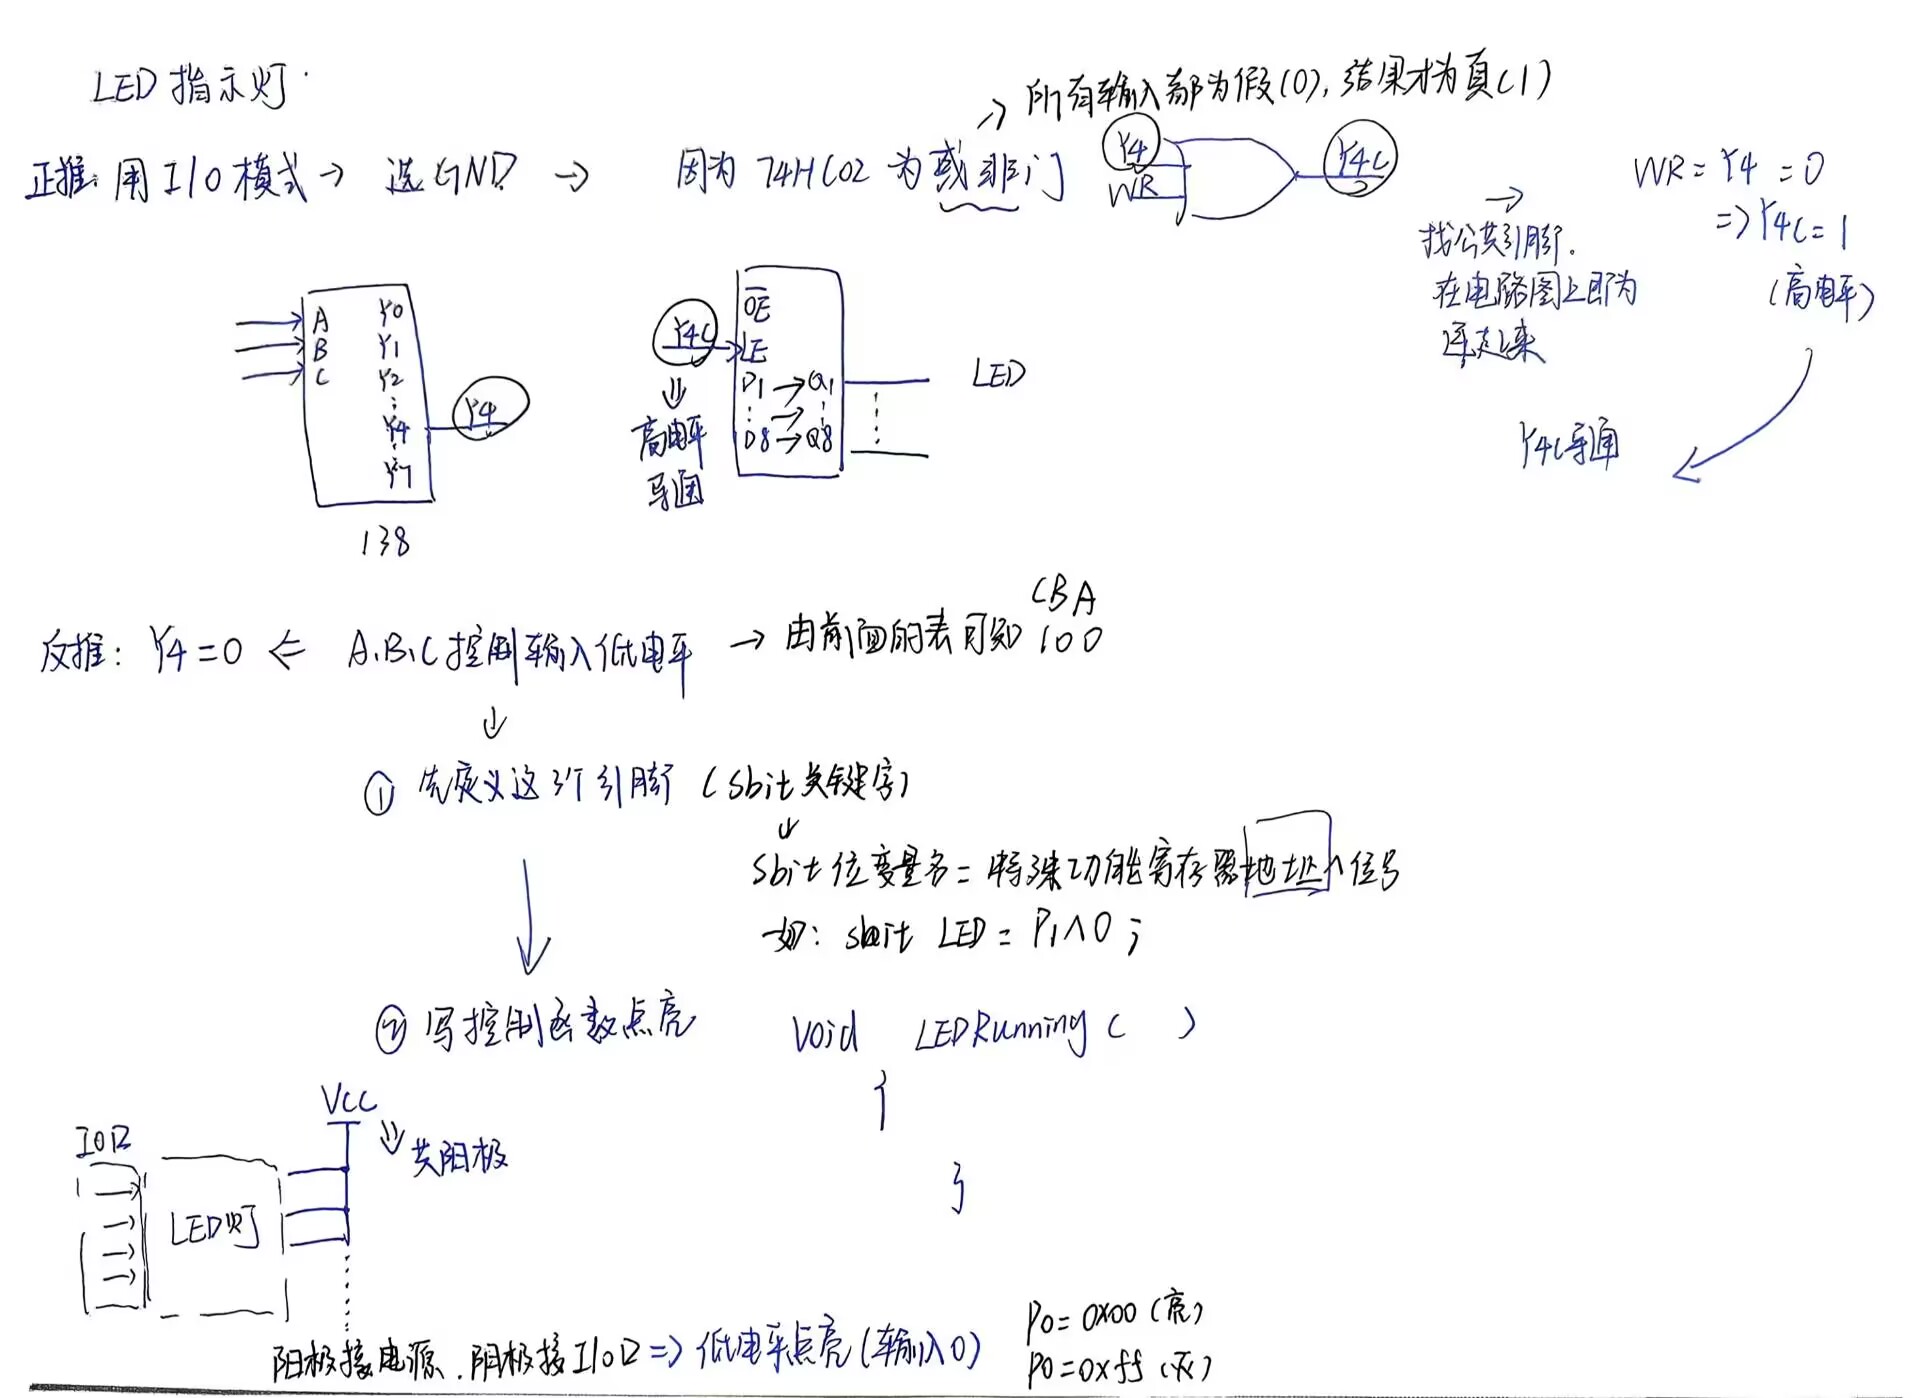 LED 指示灯
→ 所有输入都为假(0),结果才为真(1)
正推: 用 I/O 模式 → 选 GND → 因为 74HC02 为或非门
Y4
WR
Y4C
WR = Y4 = 0
=> Y4C = 1
(高电平)
→
找公共引脚.
在电路图上即为
连起来
Y4C导通
A Y0
B Y1
C Y2
Y4
Y7
Y4
138
OE
Y4C LE
D1 → Q1
D8 → Q8
LED
高电平
导通
CBA
反推: Y4=0 <= A.B.C 控制输入低电平 → 由前面的表可知 100
① 先定义这3个引脚 (sbit关键字)
sbit 位变量名 = 特殊功能寄存器地址^位号
如: sbit LED = P1^0;
② 写控制函数点亮 void LEDRunning ( )
{
}
VCC
共阳极
IO口
LED灯
阳极接电源.阴极接 I/O口 => 低电平点亮 (输入0)
P0=0x00 (亮)
P0=0xff (灭)